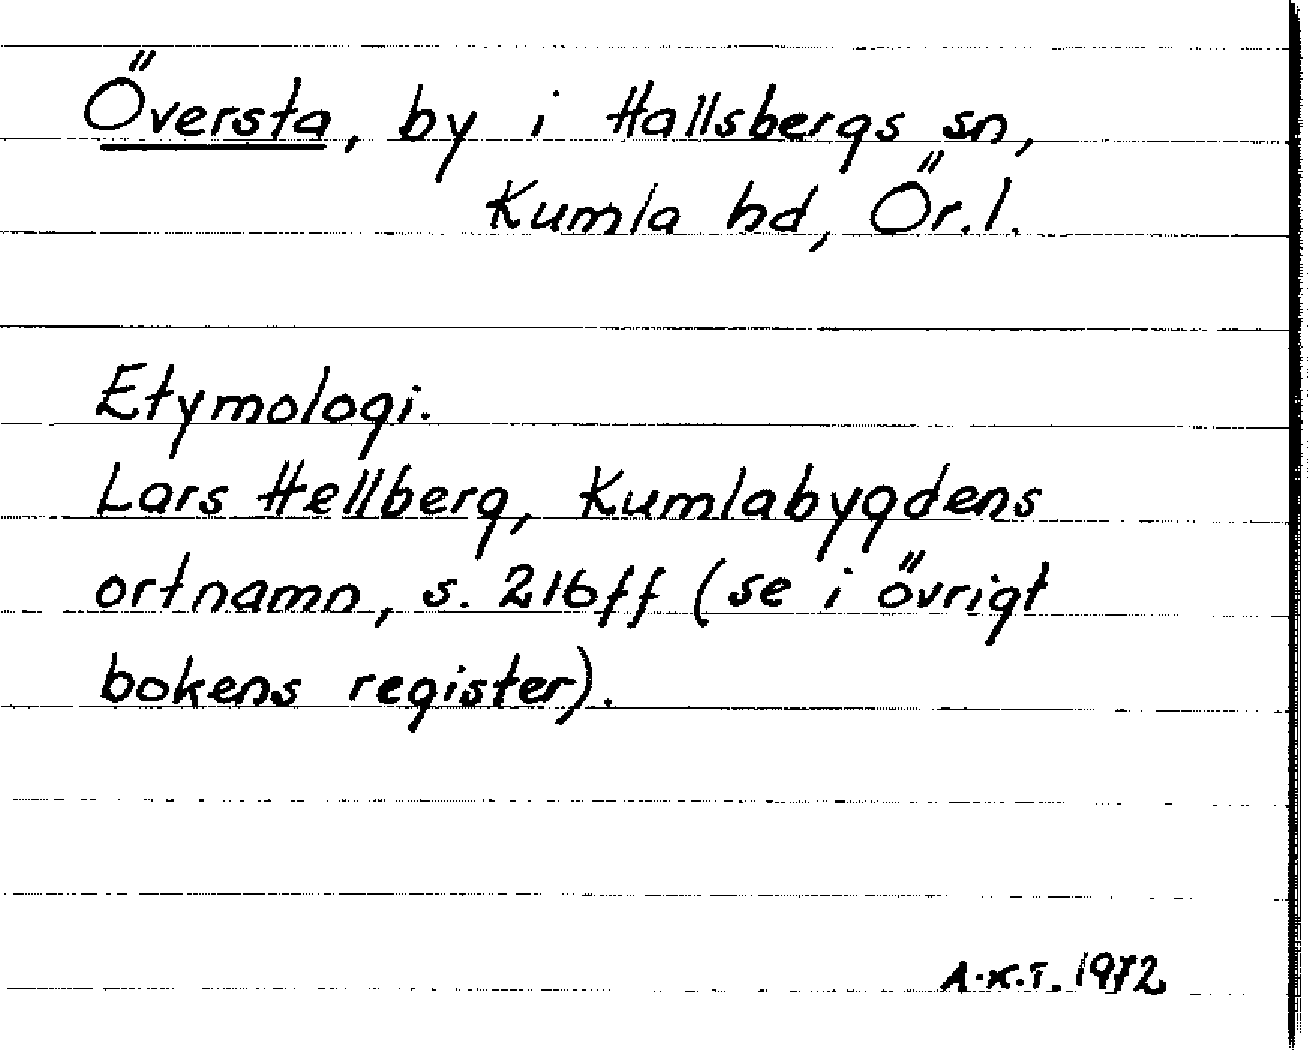 Översta, by i Hallsbergs sn,
Kumla hd, Ör.l.
Etymologi.
Lars Hellberg, Kumlabygdens
ortnamn, s. 216ff (se i övrigt
bokens register).
A.K.T. 1972